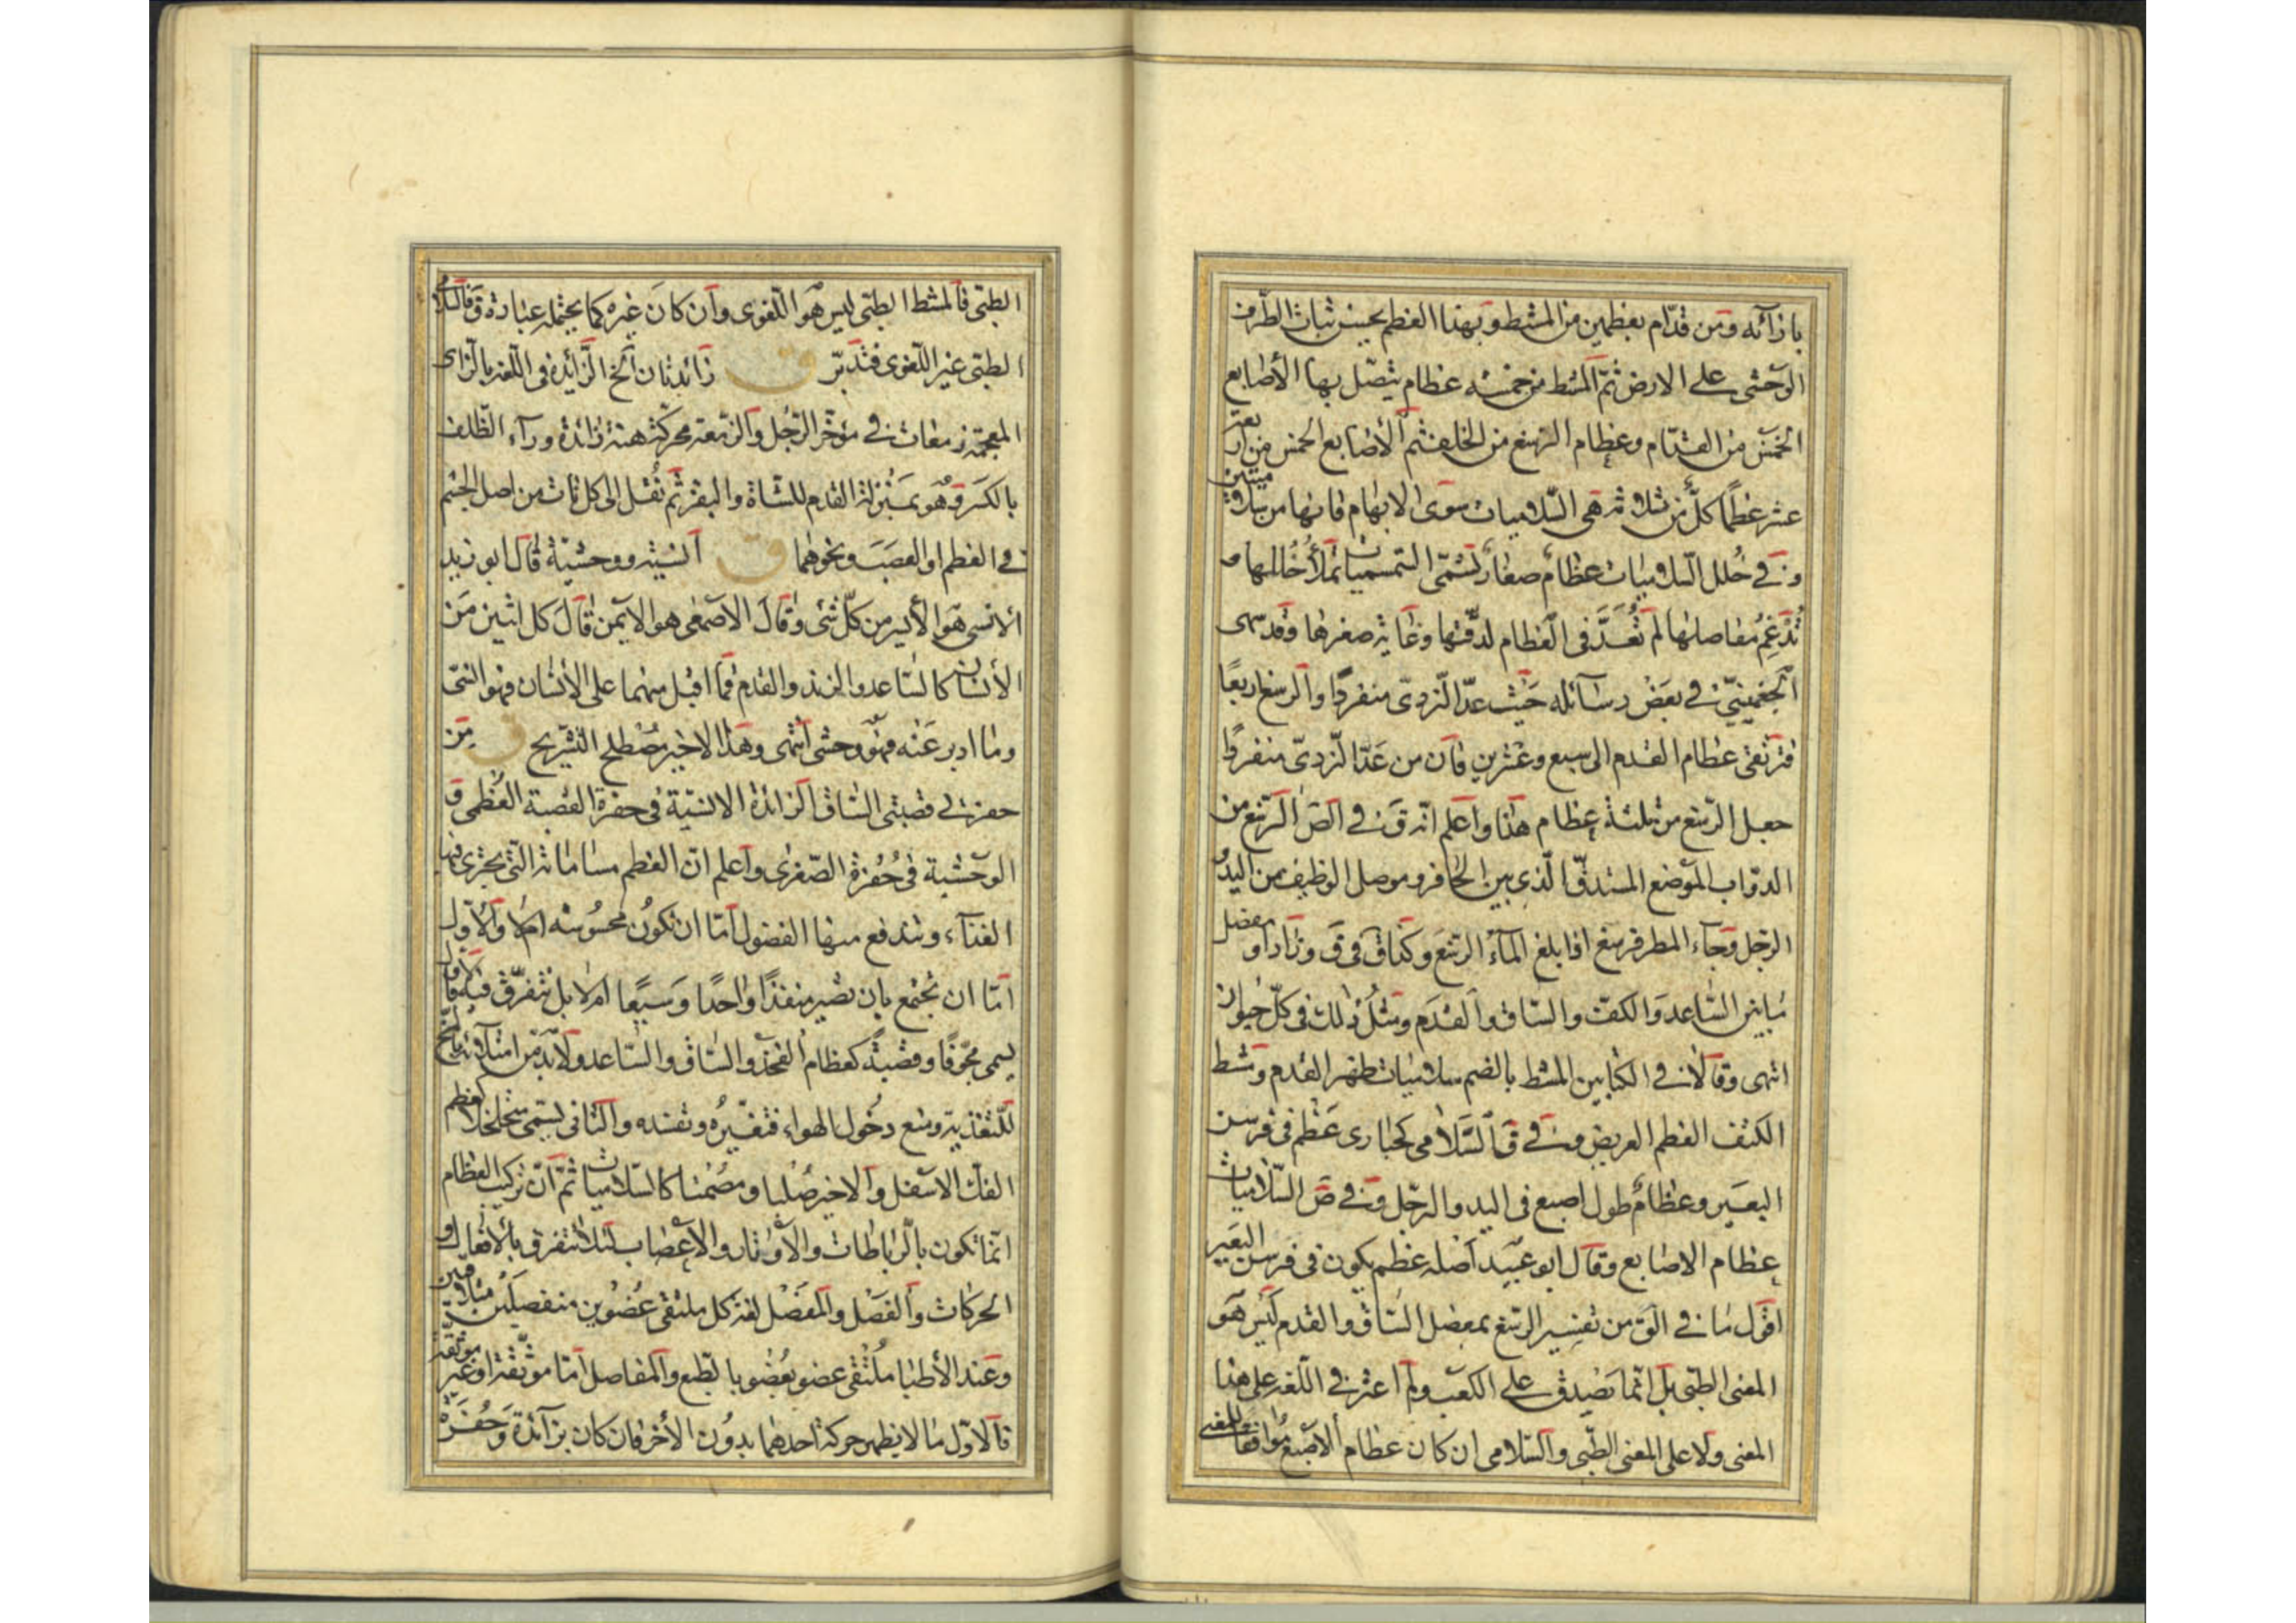 بازآئه ومن قدّام بعظمين من المشط وبهذا العظم يحسن ثبات الطّرف
الوحشى على الارض ثمّ المشط من خمسة عظام يتصّل بها الأصابع
الخمس من القدّام وعظام الرسغ من الخلف ثم الأصابع الخمس من اربعة
عشر عظمًا كلّ من ثلاثة هى السّلاميات سوى الابهام فانها من سلاميتين
و فى خُلل السّلاميات عظامٌ صغارٌ تسمّى السّمسميات تملأ خُللها و
تُدْغِمُ مفاصلها لم تُعَدَّ فى العظام لدقّتها وغاية صغرها وقد سهى
الجغمينىّ فى بعض رسآئله حيث عدّ النّردىّ منفردًا والرسغ اربعًا
فترتقى عظام القدم الى سبع وعشرين فان من عدّ النّردىّ منفردًا
جعل الرّسغ من ثلثة عظام هذا واعلم انّه ق فى ص الرّسغ من
الدوّاب الموضع المستدقّ الّذى بين الحافر وموصل الوظيف من اليد و
الرّجل وجآء المطر فرسغ اذا بلغ المآء الرّسغ وكذا فى ق وزاد او مفصل
مابين السّاعد والكفّ والسّاق والقدم ومثل ذلك فى كلّ حيوان
انتهى وقالا فى الكتابين المشط بالضم سلاميات ظهر القدم ومشط
الكتف العظم العريض و فى ق السّلامى كحبارى عظم فى فرسن
البعير وعظامٌ طول اصبع فى اليد والرّجل و فى ص السّلاميات
عظام الاصابع وقال ابو عبيد اصله عظم يكون فى فرسن البعير
اقول ما فى ق من تفسير الرّسغ بمفصل السّاق والقدم ليس هو
المعنى الطبّى بل انّما يصدق على الكعب ولم اعثر فى اللّغة على هذا
المعنى ولا على المعنى الطبّى والسّلامى ان كان عظام الاصبع موافقًا للمعنى
الطبّى فالمشط الطبّى ليس هو اللّغوى وان كان غيره كما يحتمله عبارة ق فالسّلامى
الطبّى غير اللّغوى فتدبّر ق زائدتان الخ الزّائدة فى اللّغة بالزّاى
المعجمة زمعات فى مؤخّر الرّجل والزّمعة محرّكة هنة زائدة ورآء الظّلف
بالكسر وهو بمنزلة القدم للشّاة والبقر ثم نُقل الى كل نات من اصل الجسم
فى العظم او العصب ونحوهما ق انسيّة ووحشيّة قال ابو زيد
الانسى هو الأيسر من كلّ شئ وقال الاصمعى هو الايمن قال كل اثنين من
الأنسان كالسّاعد والزند والقدم فما اقبل منهما على الأنسان فهو انسىّ
وما ادبر عنه فهو وحشى انتهى وهذا الاخير مصطلح التّشريح ق من
حفرتى قصبتى السّاق الزائدة الانسيّة فى حفرة القصبة العُظمى و
الوحشية فى حُفرة الصّغرى واعلم انّ العظم مساماته الّتى يجرى فيها
الغذآء وتندفع منها الفضول امّا ان تكون محسوسة ام لا والاوّل
امّا ان تجتمع بان تصير منفذًا واحدًا وسيعًا ام لا بل تتفرّق فيه فالاول
يسمى مجوّفًا وقصبة كعظام الفخذ والسّاق والسّاعد ولابدّ من امتلآئه بالمخّ
للتّغذية ومنع دخول الهواء فتغيّره وتفسده والثانى يسمّى متخلخلا كعظم
الفكّ الاسفل والاخير صُلبا ومُصمتا كالسّلاميات ثمّ انّ تركيب العظام
انّما تكون بالرّباطات والاوتار والاعصاب لئلا تتفرق بالأفعال و
الحركات والفصل والمفصل لغة كل ملتقى عُضوين منفصلين متلاقيين
وعند الأطبا مُلتقى عضو بعُضو بالطّبع والمفاصل امّا موثّقة او غير موثّقة
فالاوّل ما لا يظهر حركة احدهما بدون الأخر فان كان بزآئدة وحُفرة